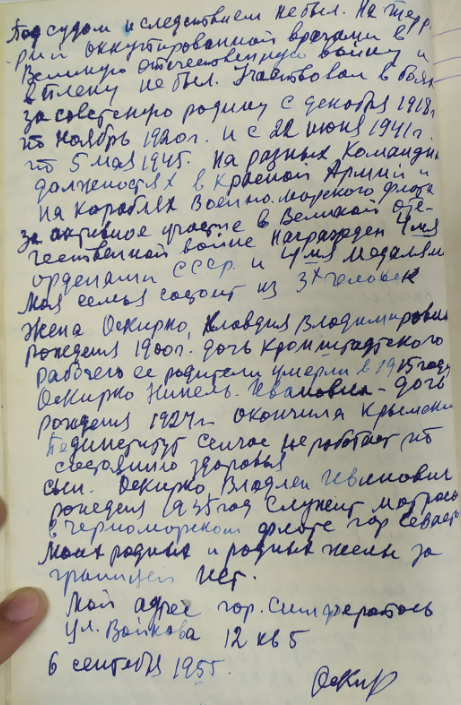 Под судом и следствием не был. На терр
рии оккупированной врагами в
Великую отечественную войну и
в плену не был. Участвовал в боях
за советскую родину с декабря 1918г
по ноябрь 1920г. и с 22 июня 1941г.
по 5 мая 1945. на разных командн
должностях в Красной Армии и
на кораблях военно-морского флота
за активное участие в Великой оте-
чественной войне награжден 4мя
орденами СССР. и 4мя медалями
Моя семья состоит из 3х человек
Жена Оскирко, Клавдия Владимировн
рождения 1900г. дочь кронштадтского
рабочего ее родители умерли в 1915 году
Оскирко Нинель Ивановна - дочь
рождения 1924г. окончила крымски
Пединститут сейчас не работает по
состоянию здоровья
сын. Оскирко, Владлен Иванович
рождения 1935 год служит матросо
в черноморском флоте гор Севаст
Моих родных и родных жены за
границей нет.
Мой адрес гор. Симферополь
ул. Войкова 12 кв 5
6 сентября 1955г.
Оскир